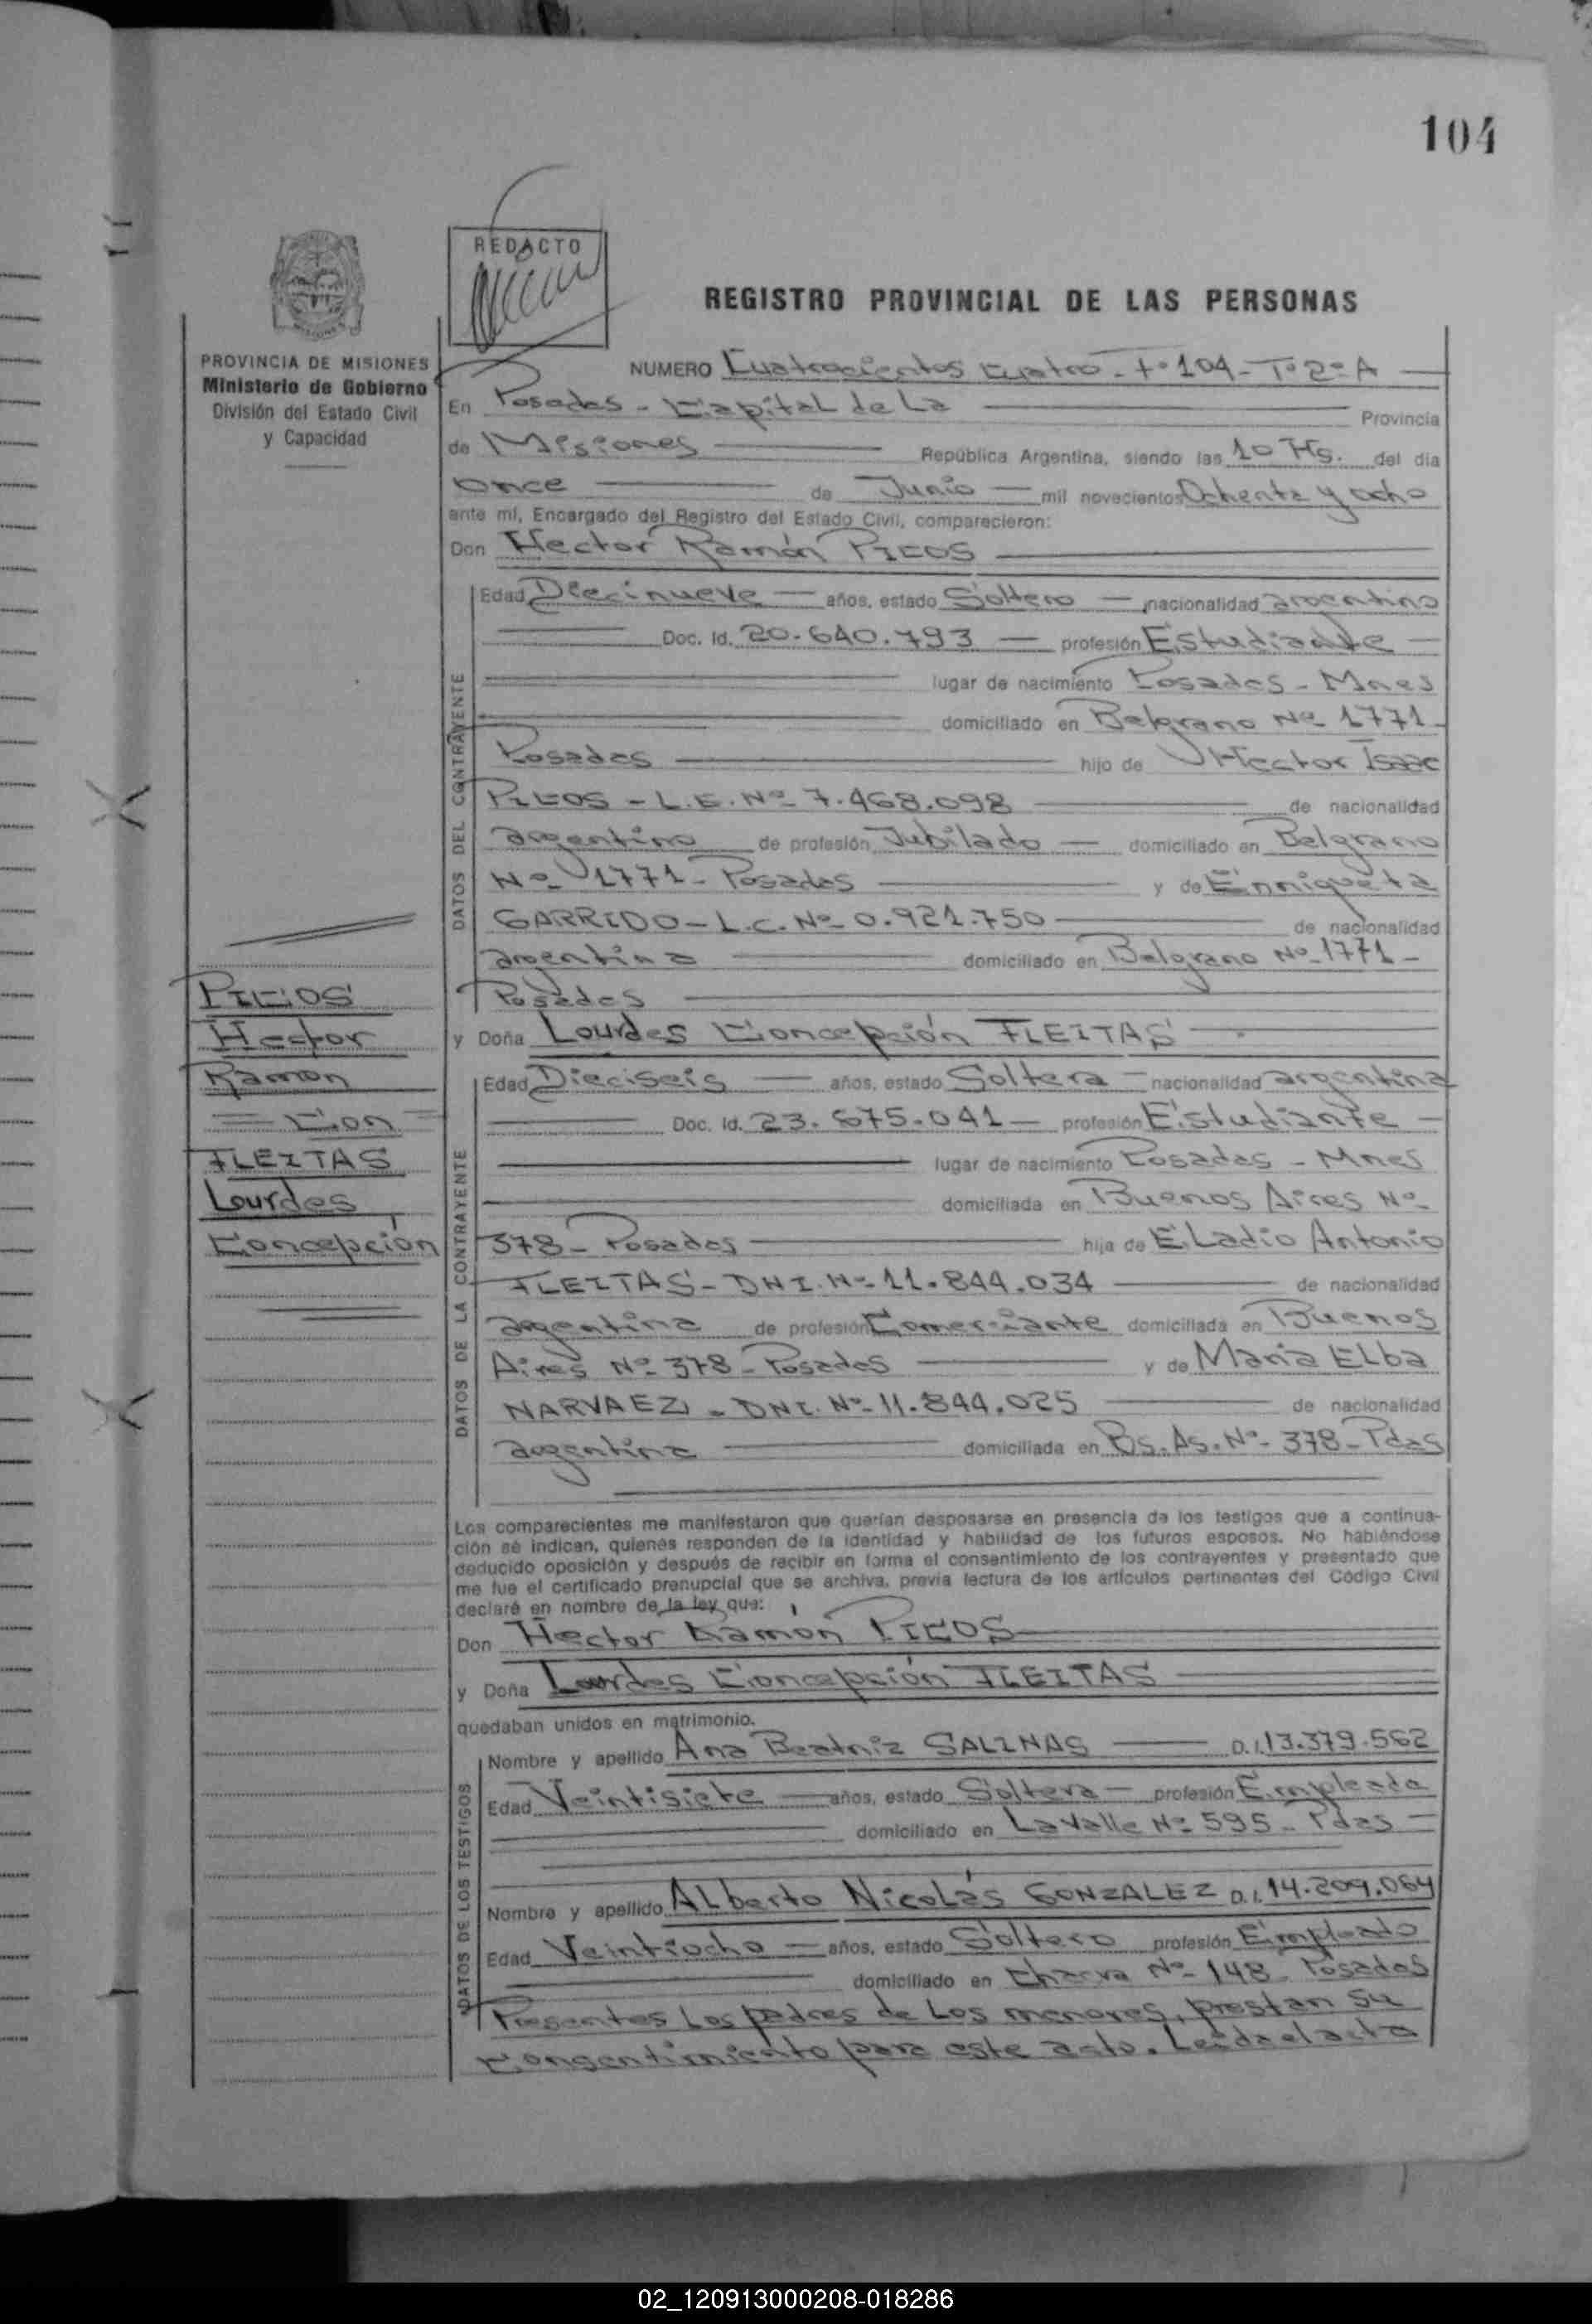 104
REDACTO
REGISTRO PROVINCIAL DE LAS PERSONAS
PROVINCIA DE MISIONES
Ministerio de Gobierno
División del Estado Civil
y Capacidad
NUMERO Cuatrocientos cuatro - Fº 104 - Tº 2º A
En Posadas - Capital de La Provincia
de Misiones República Argentina, siendo las 10 Hs. del día
once de Junio mil novecientos Ochenta y ocho
ante mí, Encargado del Registro del Estado Civil, comparecieron:
Don Hector Ramón PICOS
DATOS DEL CONTRAYENTE
Edad Diecinueve años, estado Soltero nacionalidad argentino
Doc. Id. 20.640.793 profesión Estudiante
lugar de nacimiento Posadas - Mnes
domiciliado en Belgrano Nº 1771
Posadas hijo de Hector Isaac
PICOS - L.E. Nº 7.468.098 de nacionalidad
argentino de profesión Jubilado domiciliado en Belgrano
Nº 1771 - Posadas y de Enriqueta
GARRIDO - L.C. Nº 0.921.750 de nacionalidad
argentina domiciliado en Belgrano Nº 1771 -
Posadas
PICOS
Hector
Ramon
= Con =
FLEITAS
Lourdes
Concepción
y Doña Lourdes Concepción FLEITAS
DATOS DE LA CONTRAYENTE
Edad Dieciseis años, estado Soltera nacionalidad argentina
Doc. Id. 23.675.041 profesión Estudiante
lugar de nacimiento Posadas - Mnes
domiciliada en Buenos Aires Nº
378 - Posadas hija de Eladio Antonio
FLEITAS - DNI. Nº 11.844.034 de nacionalidad
argentina de profesión Comerciante domiciliada en Buenos
Aires Nº 378 - Posadas y de Maria Elba
NARVAEZ - DNI. Nº 11.844.025 de nacionalidad
argentina domiciliada en Bs. As. Nº 378 - Pdas
Los comparecientes me manifestaron que querían desposarse en presencia de los testigos que a continua-
ción se indican, quienes responden de la identidad y habilidad de los futuros esposos. No habiéndose
deducido oposición y después de recibir en forma el consentimiento de los contrayentes y presentado que
me fue el certificado prenupcial que se archiva, previa lectura de los artículos pertinentes del Código Civil
declaré en nombre de la ley que:
Don Hector Ramón PICOS
y Doña Lourdes Concepción FLEITAS
quedaban unidos en matrimonio.
DATOS DE LOS TESTIGOS
Nombre y apellido Ana Beatriz SALINAS D.I. 13.379.562
Edad Veintisiete años, estado Soltera profesión Empleada
domiciliado en Lavalle Nº 595 - Pdas
Nombre y apellido Alberto Nicolás GONZALEZ D.I. 14.209.064
Edad Veintiocho años, estado Soltero profesión Empleado
domiciliado en Chacra Nº 148 - Posadas
Presentes Los padres de Los menores, prestan su
consentimiento para este acto. Leída el acta
02_120913000208-018286